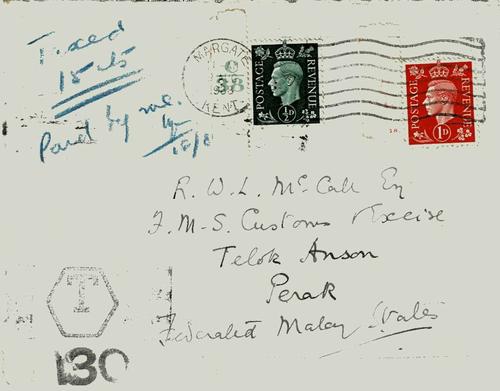 Taxed
15 cts
Paid by me.
18/8
MARGATE
KENT
38
POSTAGE REVENUE
½D
POSTAGE REVENUE
1D
R. W. L. McCall Esq
F. M. S. Customs & Excise
Telok Anson
Perak
Federated Malay States
T
130